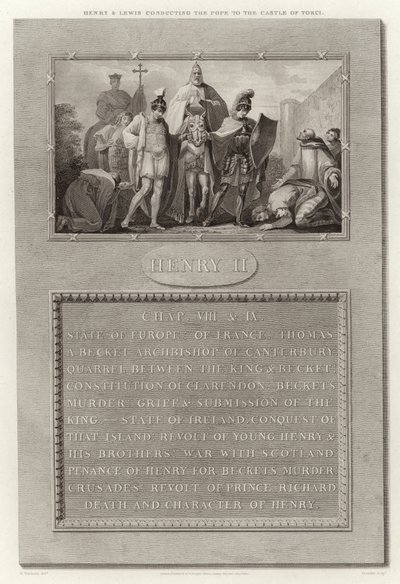 HENRY & LEWIS CONDUCTING THE POPE TO THE CASTLE OF TORCI.
HENRY II
CHAP. VIII & IX.
STATE OF EUROPE: OF FRANCE. THOMAS
A BECKET ARCHBISHOP OF CANTERBURY.
QUARREL BETWEEN THE KING & BECKET.
CONSTITUTION OF CLARENDON. BECKETS
MURDER: GRIEF & SUBMISSION OF THE
KING. — STATE OF IRELAND: CONQUEST OF
THAT ISLAND: REVOLT OF YOUNG HENRY &
HIS BROTHERS: WAR WITH SCOTLAND.
PENANCE OF HENRY FOR BECKETS MURDER.
CRUSADES: REVOLT OF PRINCE RICHARD
DEATH AND CHARACTER OF HENRY.